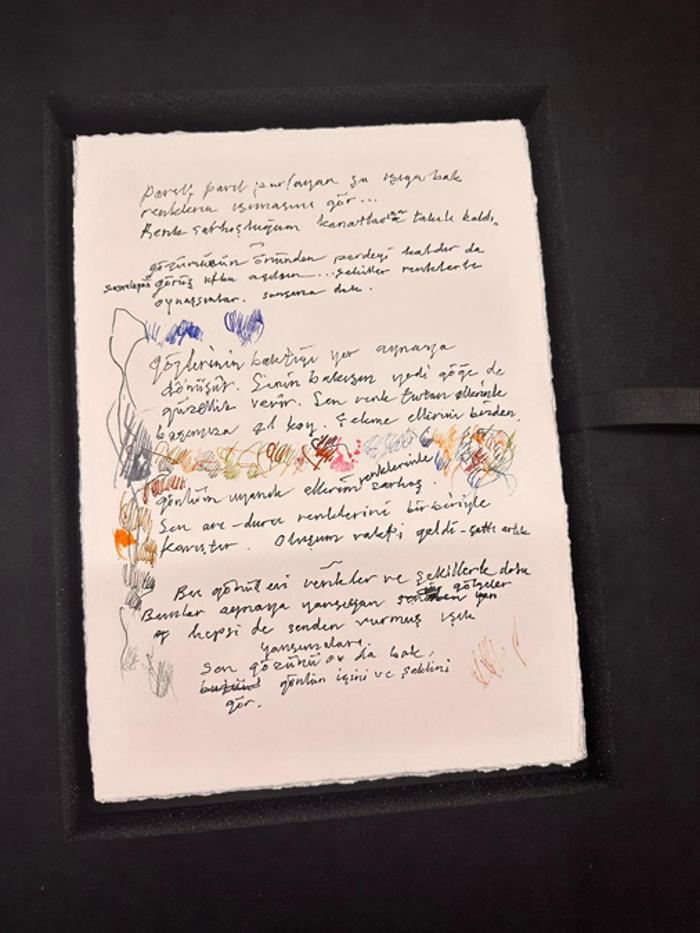 parıl parıl parlayan şu ışığa bak
renklerin ışımasını gör...
Renk sarhoşluğum kanatlara takılı kaldı.
gözümüzün önünden perdeyi kaldır da
görüş ufku açılsın... şekiller renklerle
oynaşsınlar. sonsuza dek.
gözlerinin baktığı yer aynaya
dönüşür. Senin bakışın yedi göğe de
güzellik verir. Sen renk tutan ellerinle
başımıza el koy. Çekme ellerini bizden.
gönlüm uyanık ellerim renklerinle sarhoş.
Sen arı-duru renklerini birbiriyle
karıştır. Oluşum vakti geldi-çattı artık
Bu gönül evi renkler ve şekillerle dolu
Bunlar aynaya yansıyan gölgeler
hepsi de senden vurmuş ışık
yansımaları.
Sen gözünü aç da bak,
gönlün işini ve şeklini
gör.